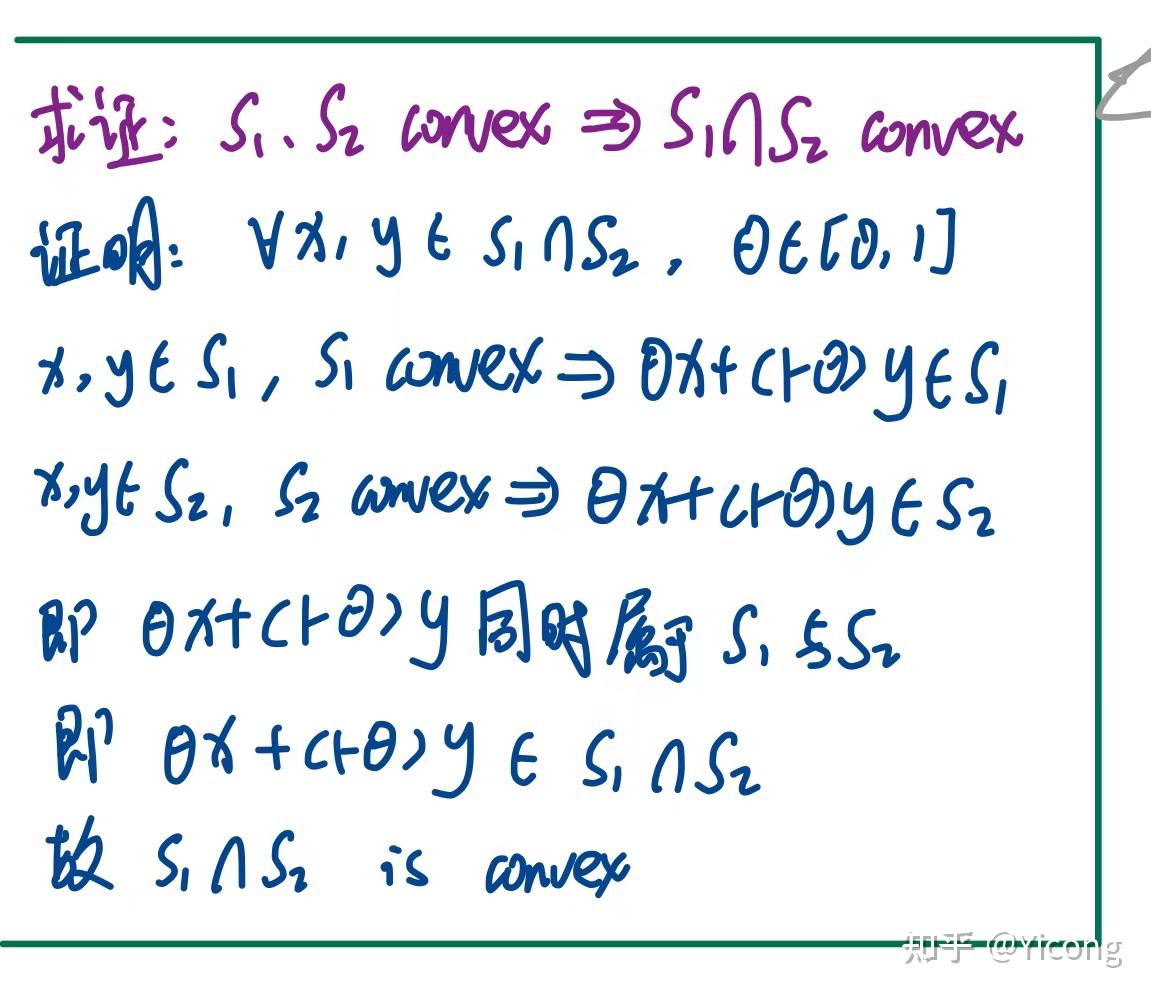 求证: S₁、S₂ convex ⇒ S₁∩S₂ convex
证明: ∀x, y ∈ S₁∩S₂, θ∈[0,1]
x,y∈S₁, S₁ convex ⇒ θx+(1-θ)y∈S₁
x,y∈S₂, S₂ convex ⇒ θx+(1-θ)y∈S₂
即 θx+(1-θ)y 同时属于 S₁与S₂
即 θx+(1-θ)y ∈ S₁∩S₂
故 S₁∩S₂ is convex
知乎 @Yicong